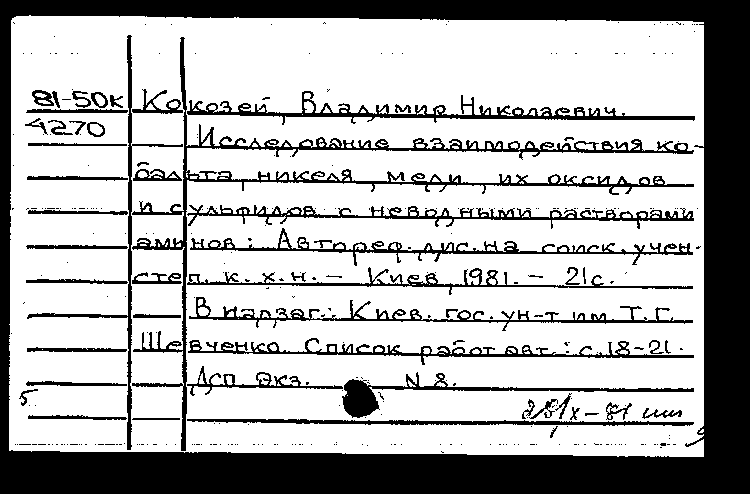 81-50к Кокозей, Владимир Николаевич.
4270 Исследование взаимодействия ко-
бальта, никеля, меди, их оксидов
и сульфидов с неводными растворами
аминов: Автореф. дис. на соиск. учен.
степ. к. х. н. – Киев, 1981. – 21с.
В надзаг.: Киев. гос. ун-т им. Т.Г.
Шевченко. Список работ авт.: с.18-21.
Дсп Экз. N 8.
5